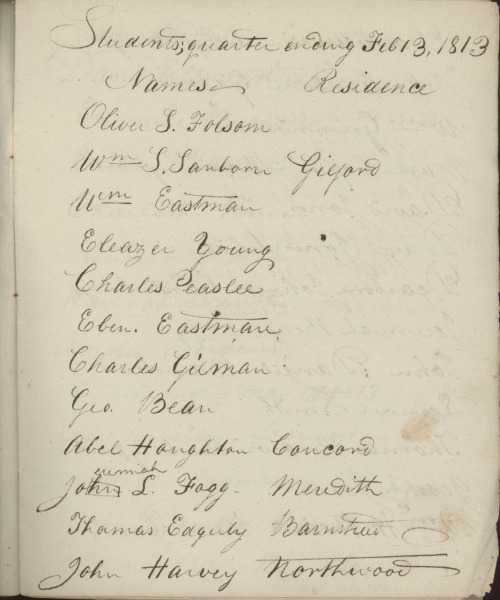 Students; quarter ending Feb 13, 1813
Names Residence
Oliver S. Folsom
Wm S. Sanborn Gilford
Wm Eastman
Eleazer Young
Charles Peaslee
Eben. Eastman
Charles Gilman
Geo. Bean
Abel Houghton Concord
eremiah
John L. Fogg. Meredith
Thomas Edgerly Barnstead
John Harvey Northwood